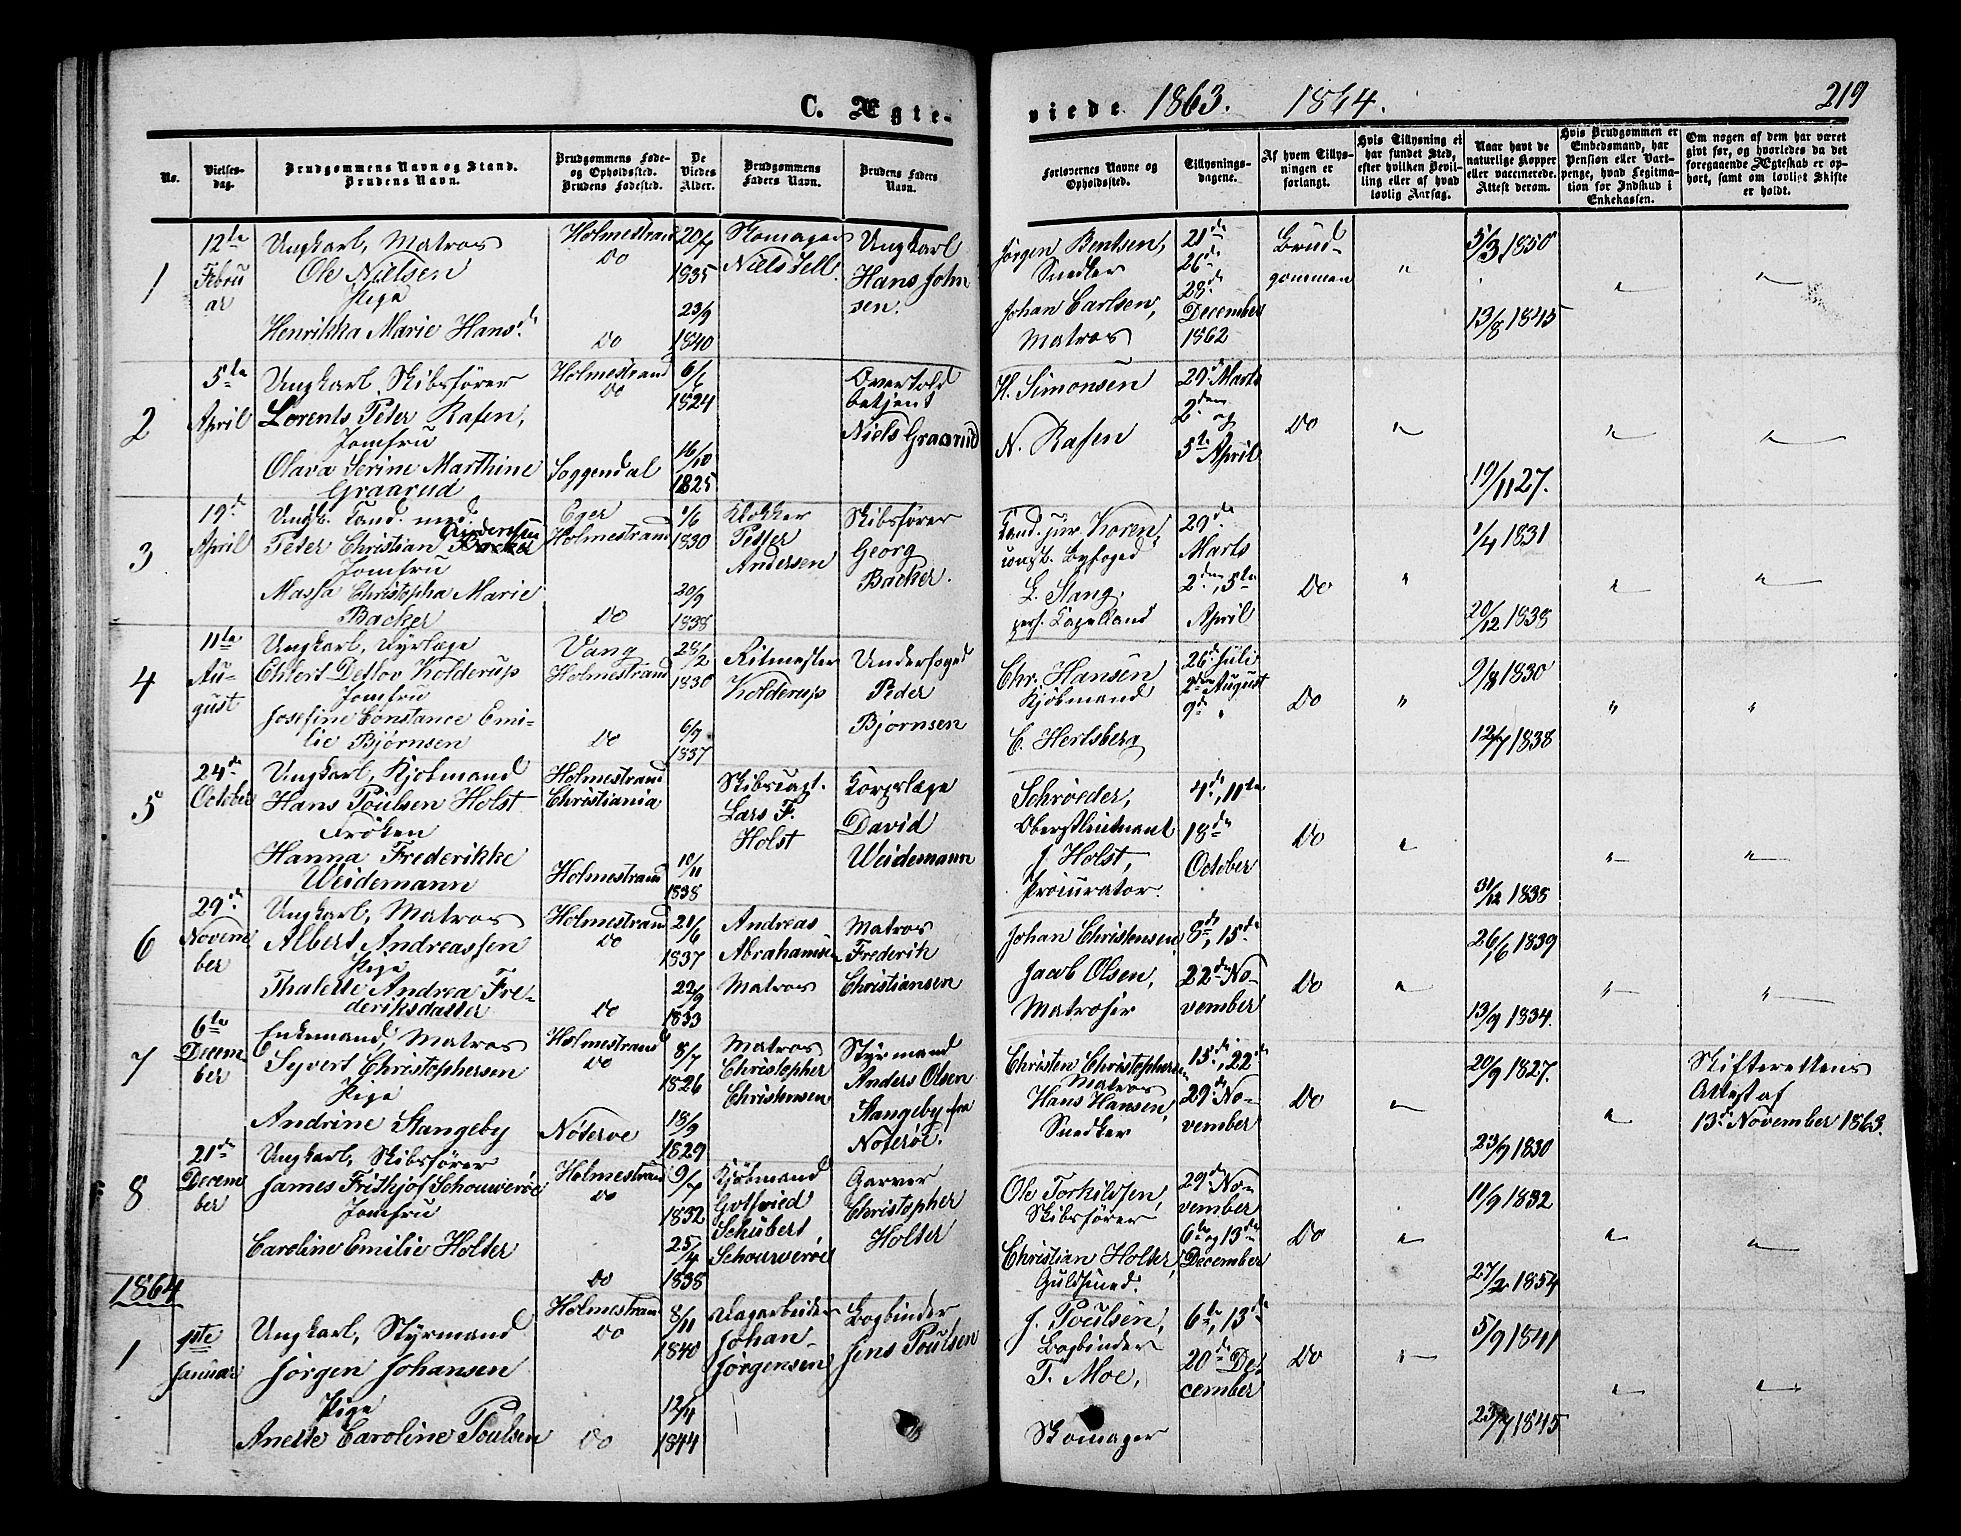 C. Ægte-
viede 1863. 1864.
219
No.
Vielses-
dag.
Brudgommens Navn og Stand.
Brudens Navn.
Brudgommens Føde-
og Opholdssted.
Brudens Fødested.
De
Viedes
Alder.
Brudgommens
Faders Navn.
Brudens Faders
Navn.
Forlovernes Navne og
Opholdssted.
Tillysnings-
dagene.
Af hvem Tillys-
ningen er
forlangt.
Hvis Tillysning ei
har fundet Sted,
efter hvilken Bevil-
ling eller af hvad
lovlig Aarsag.
Naar havt de
naturlige Kopper
eller vaccinerede.
Attest derom.
Hvis Brudgommen er
Embedsmand, har
Pension eller Vart-
penge, hvad Legitima-
tion for Indskud i
Enkekassen.
Om nogen af dem har været
gift før, og hvorledes da det
foregaaende Ægteskab er op-
hørt, samt om lovligt Skifte
er holdt.
1
12te
Febru
ar
Ungkarl, Matros
Ole Nielsen
Pige
Henrikka Marie Hansd.
Holmestrand
Do
Do
20/7
1835
23/9
1840
Skomager
Niels Sell
Ungkarl
Hans John
sen.
Jørgen Bentsen,
Snedker
Johan Carlsen,
Matros
21de
26de
28de
December
1862
Brud-
gommen
"
5/3 1850
13/8 1845
"
"
2
5te
April
Ungkarl, Skibsfører
Lorents Peter Rafen,
Jomfru
Olava Serine Marthine
Graarud
Holmestrand
Do
Soggendal
6/6
1824
16/10
1825
Overtold
betjent
Niels Graarud
H. Simonsen
N. Rafen
29de Marts
2den og
5te April
Do
"
19/11 27.
"
"
3
19de
April
Ungk. Cand. med.
Peter Christian Andersen
Jomfru
Massa Christopha Marie
Backer
Eger
Holmestrand
Do
1/6
1830
20/9
1838
Klokker
Peter
Andersen
Skibsfører
Georg
Backer.
Cand. jur. Koren,
const. Byfoged
L. Stang,
pers. Capelland
29de
Marts
2den, 5te
April
Do
"
1/4 1831
20/12 1838
"
"
4
11te
Au-
gust
Ungkarl, Dyrlæge
Ehbert Detlov Kolderup
Jomfru
Josefine Constance Emi-
lie Bjørnsen
Vang
Holmestrand
Do
28/2
1830
6/9
1837
Ritmester
Kolderup
Underfoged
Peder
Bjørnsen
Chr. Hansen
Kjøbmand
C. Hertsberg
26de Juli
2den August
9de "
Do
"
9/8 1830
12/7 1838
"
"
5
24de
October
Ungkarl, Kjøbmand
Hans Poulsen Holst
Frøken
Hanna Frederikke
Weidemann
Holmestrand
Christiania
Holmestrand
10/11
1838
Skibscapt.
Lars F.
Holst
Corpslæge
David
Weidemann
Schrøeder,
Oberstlieutnant
J. Holst,
Procurator.
4de, 11te
18de
October
Do
"
31/12 1838
"
"
6
29de
Novem
ber
Ungkarl, Matros
Albert Andreassen
Pige
Thalette Andrea Fre-
deriksdatter
Holmestrand
Do
Do
21/6
1837
22/9
1833
Andreas
Abrahamsen
Matros
Matros
Frederik
Christiansen
Johan Christensen
Jacob Olsen,
Matroser
8de, 15de
22de No-
vember
Do
"
26/6 1839
13/9 1834.
"
"
7
6te
Decem
ber
Enkemand, Matros
Syvert Christophersen
Pige
Andrine Stangeby
Holmestrand
Do
Nøterøe
8/7
1826
18/9
1829
Matros
Christopher
Christensen
Styrmand
Anders Olsen
Stangeby fra
Nøterøe.
Christen Christophersen
Matros
Hans Hansen,
Snedker
15de, 22de
29de No-
vember
Do
"
20/9 1827.
23/9 1830
"
Skifterettens
Attest af
13de November 1863.
8
21de
Decem
ber
Ungkarl, Skibsfører
James Frithjof Schouwerøe
Jomfru
Caroline Emilie Holter
Holmestrand
Do
Do
9/7
1832
25/4
1838
Kjøbmand
Gotfried
Schubert
Schouwerøe
Garver
Christopher
Holter
Ole Torkildsen,
Skibsfører
Christian Holter,
Guldsmed.
29de No-
vember
6te og 13de
December
Do
"
11/9 1832
27/2 1854
"
"
1864
1
1ste
Januar
Ungkarl, Styrmand
Jørgen Johansen
Pige
Anette Caroline Poulsen
Holmestrand
Do
Do
8/11
1840
12/4
1844
Dagarbeider
Johan
Jørgensen
Bogbinder
Jens Poulsen
J. Poulsen,
Bogbinder
T. Moe,
Skomager
6te, 13de
20de De-
cember
Do
"
5/9 1841
23/7 1845
"
"